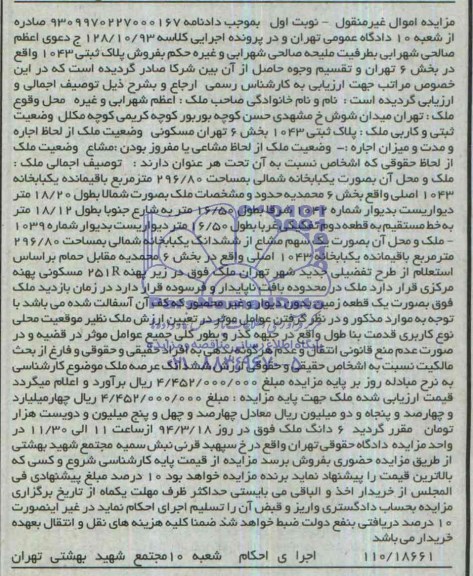 مزایده اموال غیرمنقول - نوبت اول بموجب دادنامه ۹۳۰۹۹۷۰۲۲۷۰۰۰۱۶۷ صادره
از شعبه ۱۰ دادگاه عمومی تهران و در پرونده اجرایی کلاسه ۱۲۸/۱۰/۹۳ ج دعوی اعظم
صالحی شهرابی بطرفیت ملیحه صالحی شهرابی و غیره حکم بفروش پلاک ثبتی ۱۰۴۳ واقع
در بخش ۶ تهران و تقسیم وجوه حاصل از آن بین شرکا صادر گردیده است که در این
خصوص مراتب جهت ارزیابی به کارشناس رسمی ارجاع و بشرح ذیل توصیف اجمالی و
ارزیابی گردیده است : نام و نام خانوادگی صاحب ملک : اعظم شهرابی و غیره محل وقوع
ملک : تهران میدان شوش خ مشهدی حسن کوچه بوربور کوچه کریمی کوچه مکلل وضعیت
ثبتی و کاربی ملک : پلاک ثبتی ۱۰۴۳ بخش ۶ تهران مسکونی وضعیت ملک از لحاظ اجاره
و مدت و میزان اجاره :- وضعیت ملک از لحاظ مشاعی یا مفروز بودن :مشاع وضعیت ملک
از لحاظ حقوقی که اشخاص نسبت به آن تحت هر عنوان دارند : توصیف اجمالی ملک :
ملک و محل آن بصورت یکبابخانه شمالی بمساحت ۲۹۶/۸۰ مترمربع باقیمانده یکبابخانه
۱۰۴۳ اصلی واقع بخش ۶ محمدیه حدود و مشخصات ملک بصورت شمالا بطول ۱۸/۲۰ متر
دیواریست بدیوار شماره ۱۰۴۲ شرقا بطول ۱۶/۵۰ متر به شارع جنوبا بطول ۱۸/۱۲ متر
به خط مستقیم به قطعه دوم تفکیکی غربا بطول ۱۶/۵۰ متر دیواریست بدیوار شماره ۱۰۳۹
- ملک و محل آن بصورت سهم مشاع از ششدانگ یکبابخانه شمالی بمساحت ۲۹۶/۸۰
مترمربع باقیمانده یکبابخانه ۱۰۴۳ اصلی واقع در بخش ۶ محمدیه مقابل حمام براساس
استعلام از طرح تفضیلی جدید شهر تهران ملک فوق در زیر پهنه R۲۵۱ مسکونی پهنه
مرکزی قرارد دارد ملک در محدوده بافت ناپایدار و فرسوده قرار دارد در زمان بازدید ملک
فوق بصورت یک قطعه زمین بدون دیوار و غیر محصور که کف آن آسفالت شده می باشد با
توجه به موارد مذکور و در نظر گرفتن عوامل موثر در تعیین ارزش ملک نظیر موقعیت محلی
نوع کاربری قدمت بنا طول واقع در جبهه گذر و بطور کلی جمیع عوامل موثر در قضیه و در
صورت عدم منع قانونی انتقال و عدم هرگونه بدهی به افراد حقیقی و حقوقی و فارغ از بحث
مالکیت نسبت به اشخاص حقیقی و حقوقی ارزش ششدانگ عرصه ملک موضوع کارشناسی
به نرخ مبادله روز بر پایه مزایده مبلغ ۴/۴۵۲/۰۰۰/۰۰۰ ریال برآورد و اعلام میگردد
قیمت ارزیابی شده ملک جهت پایه مزایده : مبلغ ۴/۴۵۲/۰۰۰/۰۰۰ ریال چهارمیلیارد
و چهارصد و پنجاه و دو میلیون ریال معادل چهارصد و چهل و پنج میلیون و دویست هزار
تومان مقرر گردید ۶ دانگ ملک فوق در روز ۹۴/۳/۱۸ ازساعت ۱۱ الی ۱۱/۳۰ در
واحد مزایده دادگاه حقوقی تهران واقع در خ سپهبد قرنی نبش سمیه مجتمع شهید بهشتی
از طریق مزایده حضوری بفروش برسد مزایده از قیمت پایه کارشناسی شروع و کسی که
بالاترین قیمت را پیشنهاد نماید برنده مزایده خواهد بود ۱۰ درصد مبلغ پیشنهادی فی
المجلس از خریدار اخذ و الباقی می بایستی حداکثر ظرف مهلت یکماه از تاریخ برگزاری
مزایده بحساب دادگستری واریز و قبض آن را تسلیم اجرای احکام نماید در غیر اینصورت
۱۰ درصد دریافتی بنفع دولت ضبط خواهد شد ضمنا کلیه هزینه های نقل و انتقال بعهده
خریدار می باشد
۱۱۰/۱۸۶۶۱ اجرا ی احکام شعبه ۱۰مجتمع شهید بهشتی تهران